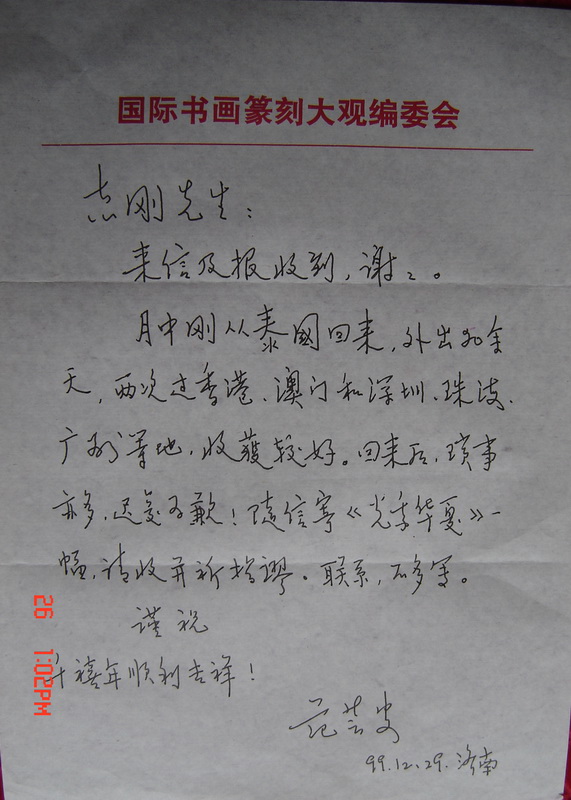 国际书画篆刻大观编委会
志刚先生：
来信及报收到，谢谢。
月中刚从泰國回来，外出20余
天，两次过香港、澳门和深圳、珠海、
广州等地，收獲较好。回来后，琐事
亦多，迟复为歉！随信寄《光季华夏》一
幅，请收并祈指謬。联系，不多写。
谨祝
千禧年顺利吉祥！
范芸
99.12.29.济南
26 1:02PM